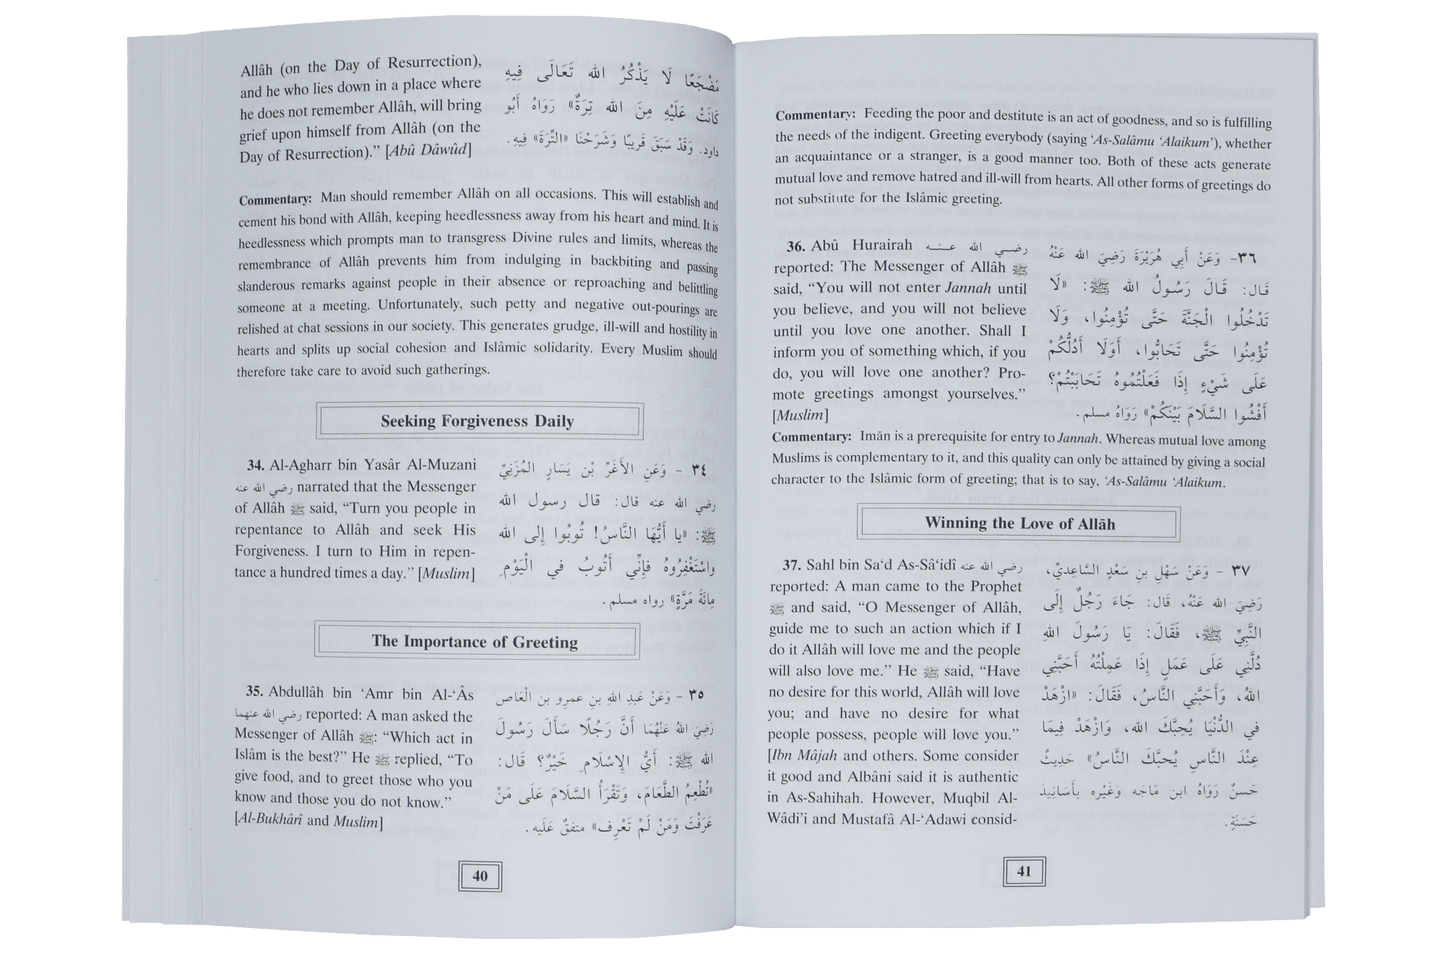 Allâh (on the Day of Resurrection),
and he who lies down in a place where
he does not remember Allâh, will bring
grief upon himself from Allâh (on the
Day of Resurrection).” [Abû Dâwûd]
مَضْجَعًا لَا يَذْكُرُ الله تَعَالَى فِيهِ
كَانَتْ عَلَيْهِ مِنَ الله تِرَةٌ» رَوَاهُ أَبُو
داود. وَقَدْ سَبَقَ قَرِيبًا وَشَرَحْنَا «التِّرَةَ» فِيهِ.
Commentary: Man should remember Allâh on all occasions. This will establish and
cement his bond with Allâh, keeping heedlessness away from his heart and mind. It is
heedlessness which prompts man to transgress Divine rules and limits, whereas the
remembrance of Allâh prevents him from indulging in backbiting and passing
slanderous remarks against people in their absence or reproaching and belittling
someone at a meeting. Unfortunately, such petty and negative out-pourings are
relished at chat sessions in our society. This generates grudge, ill-will and hostility in
hearts and splits up social cohesion and Islâmic solidarity. Every Muslim should
therefore take care to avoid such gatherings.
Seeking Forgiveness Daily
34. Al-Agharr bin Yasâr Al-Muzani
رضي الله عنه narrated that the Messenger
of Allâh ﷺ said, “Turn you people in
repentance to Allâh and seek His
Forgiveness. I turn to Him in repen-
tance a hundred times a day.” [Muslim]
٣٤ - وَعَنِ الأَغَرِّ بْن يَسَارِ المُزَنِيِّ
رضي الله عنه قال: قال رسول الله
ﷺ: «يا أَيُّهَا النَّاسُ! تُوبُوا إِلى الله
وَاسْتَغْفِرُوهُ فَإِنِّي أَتُوبُ في الْيَوْمِ
مِائَةَ مَرَّةٍ» رواه مسلم.
The Importance of Greeting
35. Abdullâh bin ‘Amr bin Al-‘Âs
رضي الله عنهما reported: A man asked the
Messenger of Allâh ﷺ: “Which act in
Islâm is the best?” He ﷺ replied, “To
give food, and to greet those who you
know and those you do not know.”
[Al-Bukhârî and Muslim]
٣٥ - وَعَنْ عَبدِ اللهِ بنِ عمرِو بنِ الْعَاص
رَضِيَ اللهُ عَنْهُمَا أَنَّ رَجُلًا سَأَلَ رَسُولَ
الله ﷺ: أَيُّ الإِسْلَامِ خَيْرٌ؟ قَالَ:
«تُطْعِمُ الطَّعَامَ، وَتَقْرَأُ السَّلَامَ عَلَى مَنْ
عَرَفْتَ وَمَنْ لَمْ تَعْرِف» متفقٌ عَلَيه.
40
Commentary: Feeding the poor and destitute is an act of goodness, and so is fulfilling
the needs of the indigent. Greeting everybody (saying ‘As-Salâmu ‘Alaikum’), whether
an acquaintance or a stranger, is a good manner too. Both of these acts generate
mutual love and remove hatred and ill-will from hearts. All other forms of greetings do
not substitute for the Islâmic greeting.
36. Abû Hurairah رضي الله عنه
reported: The Messenger of Allâh ﷺ
said, “You will not enter Jannah until
you believe, and you will not believe
until you love one another. Shall I
inform you of something which, if you
do, you will love one another? Pro-
mote greetings amongst yourselves.”
[Muslim]
٣٦- وَعَنْ أَبِي هُرَيْرَةَ رَضِيَ الله عَنْهُ
قَال: قَالَ رَسُولُ الله ﷺ: «لَا
تَدْخُلُوا الْجَنَّةَ حَتَّى تُؤْمِنُوا، وَلَا
تُؤْمِنُوا حَتَّى تَحَابُّوا، أَوَلَا أَدُلُّكُمْ
عَلَى شَيْءٍ إِذَا فَعَلْتُمُوهُ تَحَابَبْتُمْ؟
أَفْشُوا السَّلَامَ بَيْنَكُمْ» رَوَاهُ مسلم.
Commentary: Imān is a prerequisite for entry to Jannah. Whereas mutual love among
Muslims is complementary to it, and this quality can only be attained by giving a social
character to the Islâmic form of greeting; that is to say, ‘As-Salâmu ‘Alaikum.
Winning the Love of Allāh
37. Sahl bin Sa‘d As-Sâ‘idî رضي الله عنه
reported: A man came to the Prophet
ﷺ and said, “O Messenger of Allâh,
guide me to such an action which if I
do it Allâh will love me and the people
will also love me.” He ﷺ said, “Have
no desire for this world, Allâh will love
you; and have no desire for what
people possess, people will love you.”
[Ibn Mâjah and others. Some consider
it good and Albâni said it is authentic
in As-Sahihah. However, Muqbil Al-
Wâdi’i and Mustafâ Al-‘Adawi consid-
٣٧ - وَعَنْ سَهْلِ بنِ سَعْدٍ السَّاعِدِيِّ،
رَضِيَ الله عَنْهُ، قَال: جَاءَ رَجُلٌ إِلَى
النَّبِيِّ ﷺ، فَقَالَ: يَا رَسُولَ اللهِ
دُلَّنِي عَلَى عَمَلٍ إِذَا عَمِلْتُهُ أَحَبَّنِي
اللهُ، وَأَحَبَّنِي النَّاسُ، فَقَالَ: «ازْهَدْ
فِي الدُّنْيَا يُحِبَّكَ الله، وَازْهَدْ فِيمَا
عِنْدَ النَّاسِ يُحبَّكَ النَّاسُ» حَدِيثٌ
حَسَنٌ رَوَاهُ ابن مَاجَه وغَيْره بأَسَانِيدَ
حَسَنَةٍ.
41